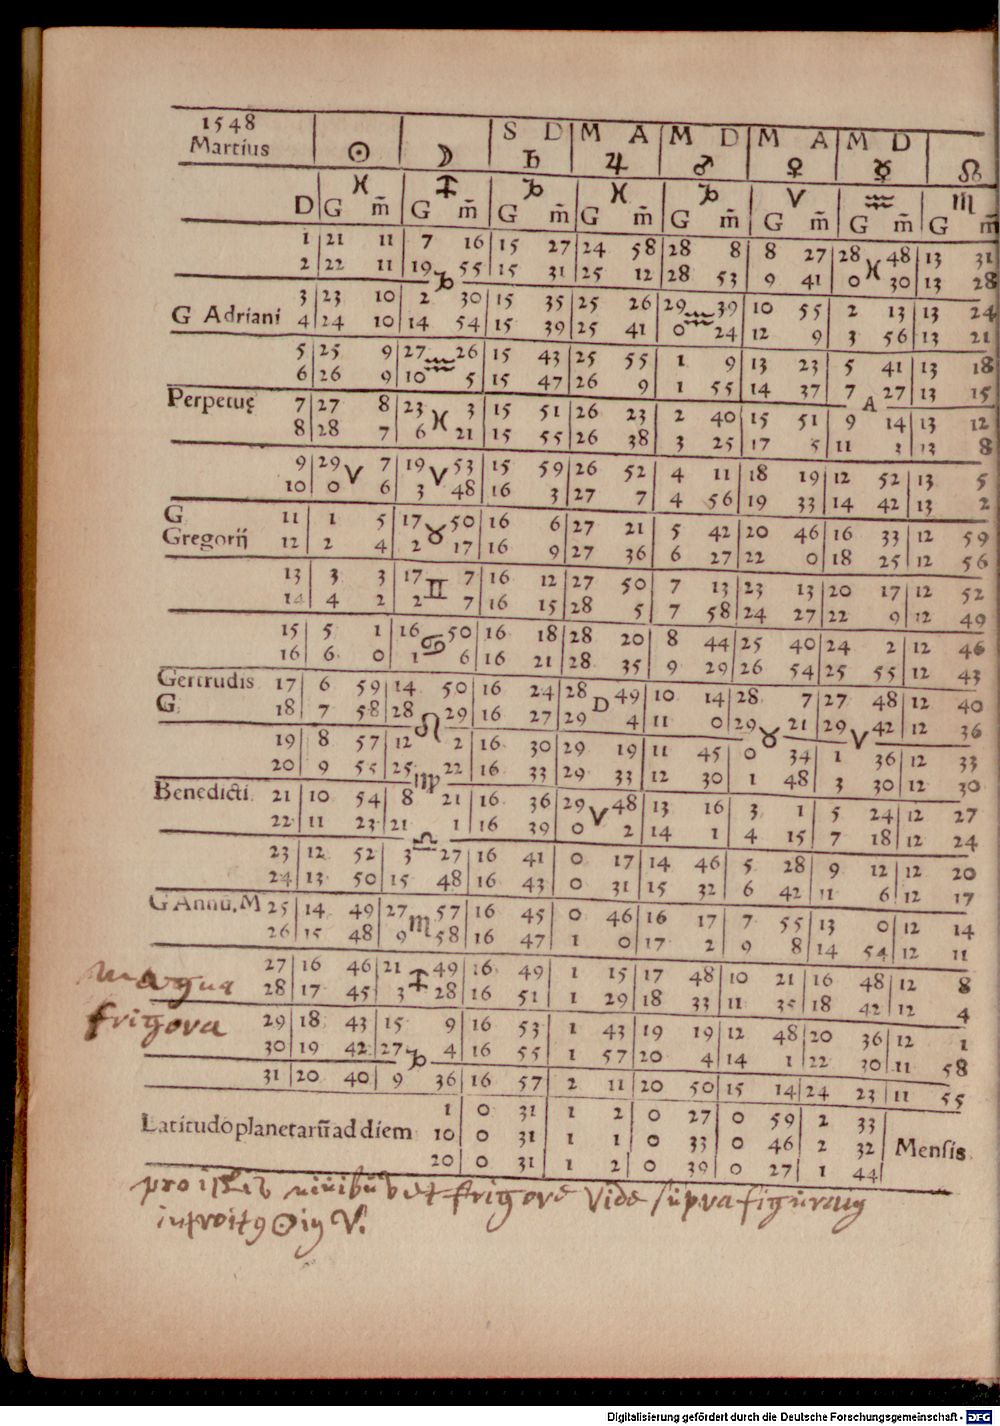 1548
Martius ☉ ☽ S D ♄ M A ♃ M D ♂ M A ♀ M D ☿ ☊
♓ ♐ ♑ ♓ ♑ ♈ ♒ ♏
D G m̃ G m̃ G m̃ G m̃ G m̃ G m̃ G m̃ G m̃
1 21 11 7 16 15 27 24 58 28 8 8 27 28 48 13 31
2 22 11 19 ♑ 55 15 31 25 12 28 53 9 41 0 ♓ 30 13 28
3 23 10 2 30 15 35 25 26 29 39 10 55 2 13 13 24
G Adriani 4 24 10 14 54 15 39 25 41 0 ♒ 24 12 9 3 56 13 21
5 25 9 27 26 15 43 25 55 1 9 13 23 5 41 13 18
6 26 9 10 ♒ 5 15 47 26 9 1 55 14 37 7 27 13 15
A
Perpetuę 7 27 8 23 3 15 51 26 23 2 40 15 51 9 14 13 12
8 28 7 6 ♓ 21 15 55 26 38 3 25 17 5 11 13 8
9 29 7 19 53 15 59 26 52 4 11 18 19 12 52 13 5
10 0 ♈ 6 3 ♈ 48 16 3 27 7 4 56 19 33 14 42 13 2
G 11 1 5 17 50 16 6 27 21 5 42 20 46 16 33 12 59
Gregorij 12 2 4 2 ♉ 17 16 9 27 36 6 27 22 0 18 25 12 56
13 3 3 17 7 16 12 27 50 7 13 23 13 20 17 12 52
14 4 2 2 ♊ 7 16 15 28 5 7 58 24 27 22 9 12 49
15 5 1 16 50 16 18 28 20 8 44 25 40 24 2 12 46
16 6 0 1 ♋ 6 16 21 28 35 9 29 26 54 25 55 12 43
Gertrudis 17 6 59 14 50 16 24 28 D 49 10 14 28 7 27 48 12 40
G 18 7 58 28 ♌ 29 16 27 29 4 11 0 29 21 29 42 12 36
19 8 57 12 2 16 30 29 19 11 45 0 ♉ 34 1 ♈ 36 12 33
20 9 55 25 ♍ 22 16 33 29 33 12 30 1 48 3 30 12 30
Benedicti 21 10 54 8 21 16 36 29 48 13 16 3 1 5 24 12 27
22 11 23 21 1 16 39 0 ♈ 2 14 1 4 15 7 18 12 24
23 12 52 3 ♎ 27 16 41 0 17 14 46 5 28 9 12 12 20
24 13 50 15 48 16 43 0 31 15 32 6 42 11 6 12 17
G Annū, M 25 14 49 27 57 16 45 0 46 16 17 7 55 13 0 12 14
26 15 48 9 ♏ 58 16 47 1 0 17 2 9 8 14 54 12 11
27 16 46 21 49 16 49 1 15 17 48 10 21 16 48 12 8
magna
28 17 45 3 ♐ 28 16 51 1 29 18 33 11 35 18 42 12 4
frigora
29 18 43 15 9 16 53 1 43 19 19 12 48 20 36 12 1
30 19 42 27 ♑ 4 16 55 1 57 20 4 14 1 22 30 11 58
31 20 40 9 36 16 57 2 11 20 50 15 14 24 23 11 55
1 0 31 1 2 0 27 0 59 2 33
Latitudo planetarū ad diem 10 0 31 1 1 0 33 0 46 2 32 Mensis
20 0 31 1 2 0 39 0 27 1 44
pro istis nivibus et frigore vide supra figuram
introitus ☉ in ♈.
Digitalisierung gefördert durch die Deutsche Forschungsgemeinschaft - DFG